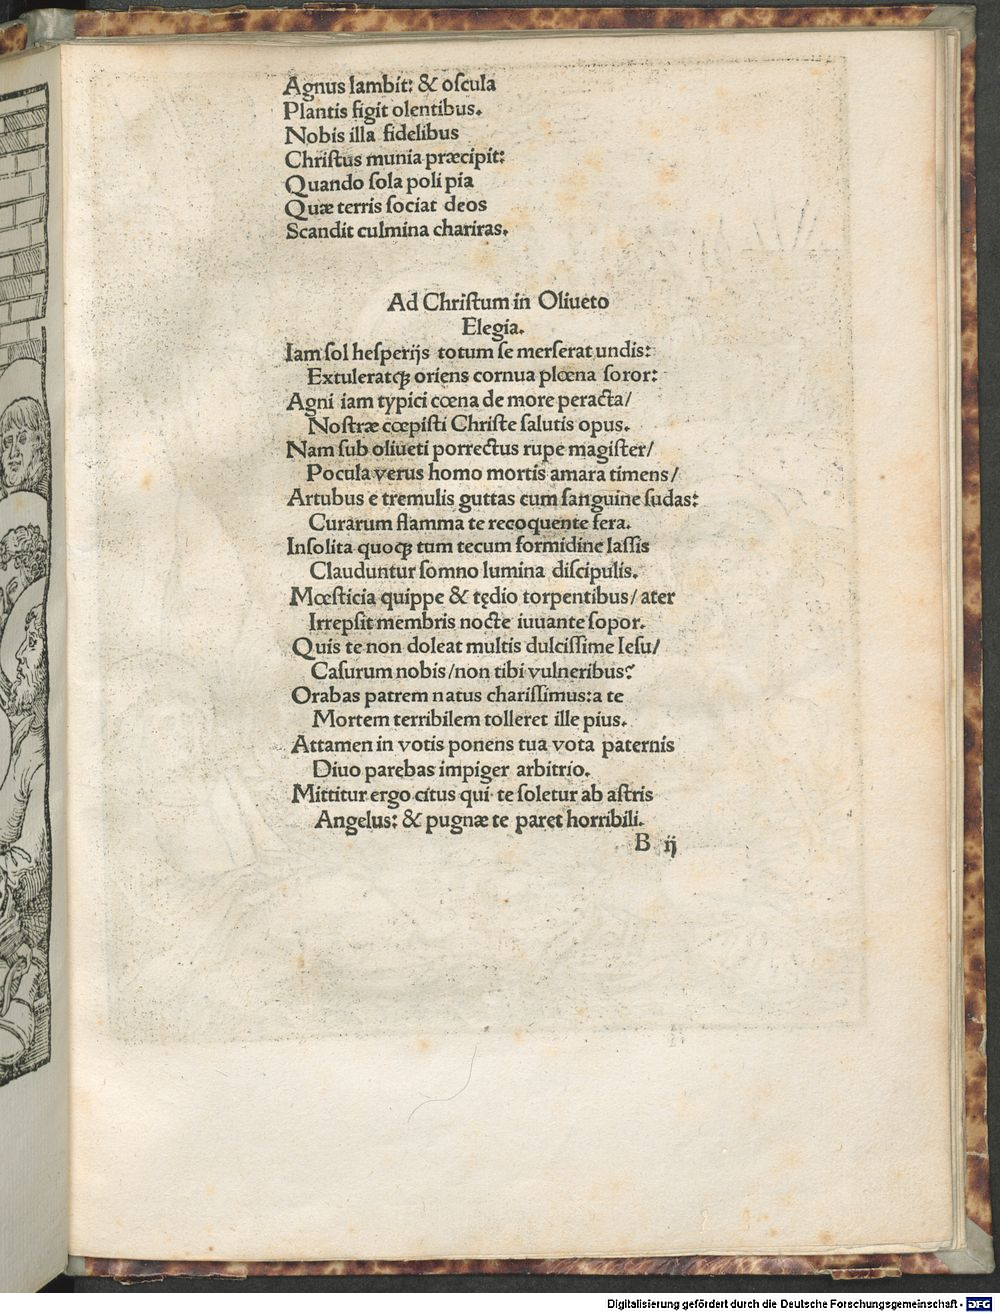 Agnus lambit: & oſcula
Plantis figit olentibus.
Nobis illa fidelibus
Chriſtus munia præcipit:
Quando ſola poli pia
Quæ terris ſociat deos
Scandit culmina chariras.
Ad Chriſtum in Oliueto
Elegia.
Iam ſol heſperijs totum ſe merſerat undis:
Extuleratqꝫ oriens cornua plœna ſoror:
Agni iam typici cœna de more peracta/
Noſtræ cœpiſti Chriſte ſalutis opus.
Nam ſub oliueti porrectus rupe magiſter/
Pocula verus homo mortis amara timens/
Artubus e tremulis guttas cum ſanguine ſudas:
Curarum flamma te recoquente fera.
Inſolita quoqꝫ tum tecum formidine laſſis
Clauduntur ſomno lumina diſcipulis.
Mœſticia quippe & tędio torpentibus/ ater
Irrepſit membris nocte iuuante ſopor.
Quis te non doleat multis dulciſſime Ieſu/
Caſurum nobis/non tibi vulneribus?
Orabas patrem natus chariſſimus:a te
Mortem terribilem tolleret ille pius.
Attamen in votis ponens tua vota paternis
Diuo parebas impiger arbitrio.
Mittitur ergo citus qui te ſoletur ab aſtris
Angelus: & pugnæ te paret horribili.
B ij
Digitalisierung gefördert durch die Deutsche Forschungsgemeinschaft - DFG